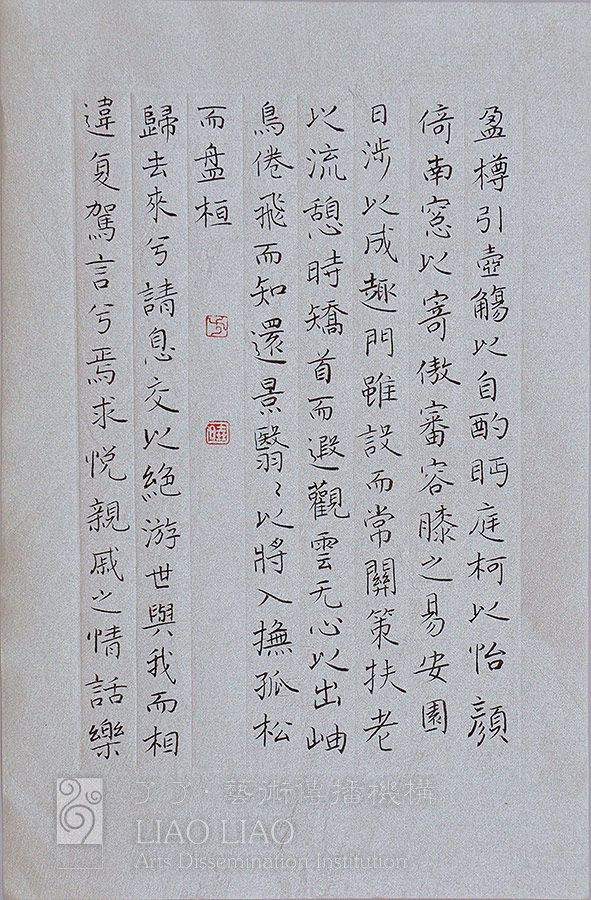 盈樽引壺觴以自酌眄庭柯以怡顏
倚南窓以寄傲審容膝之易安園
日涉以成趣門雖設而常關策扶老
以流憩時矯首而遐觀雲无心以出岫
鳥倦飛而知還景翳〻以將入撫孤松
而盤桓
歸去來兮請息交以絶游世與我而相
違复駕言兮焉求悅親戚之情話樂
了了·藝術傳播機構
LIAO LIAO
Arts Dissemination Institution